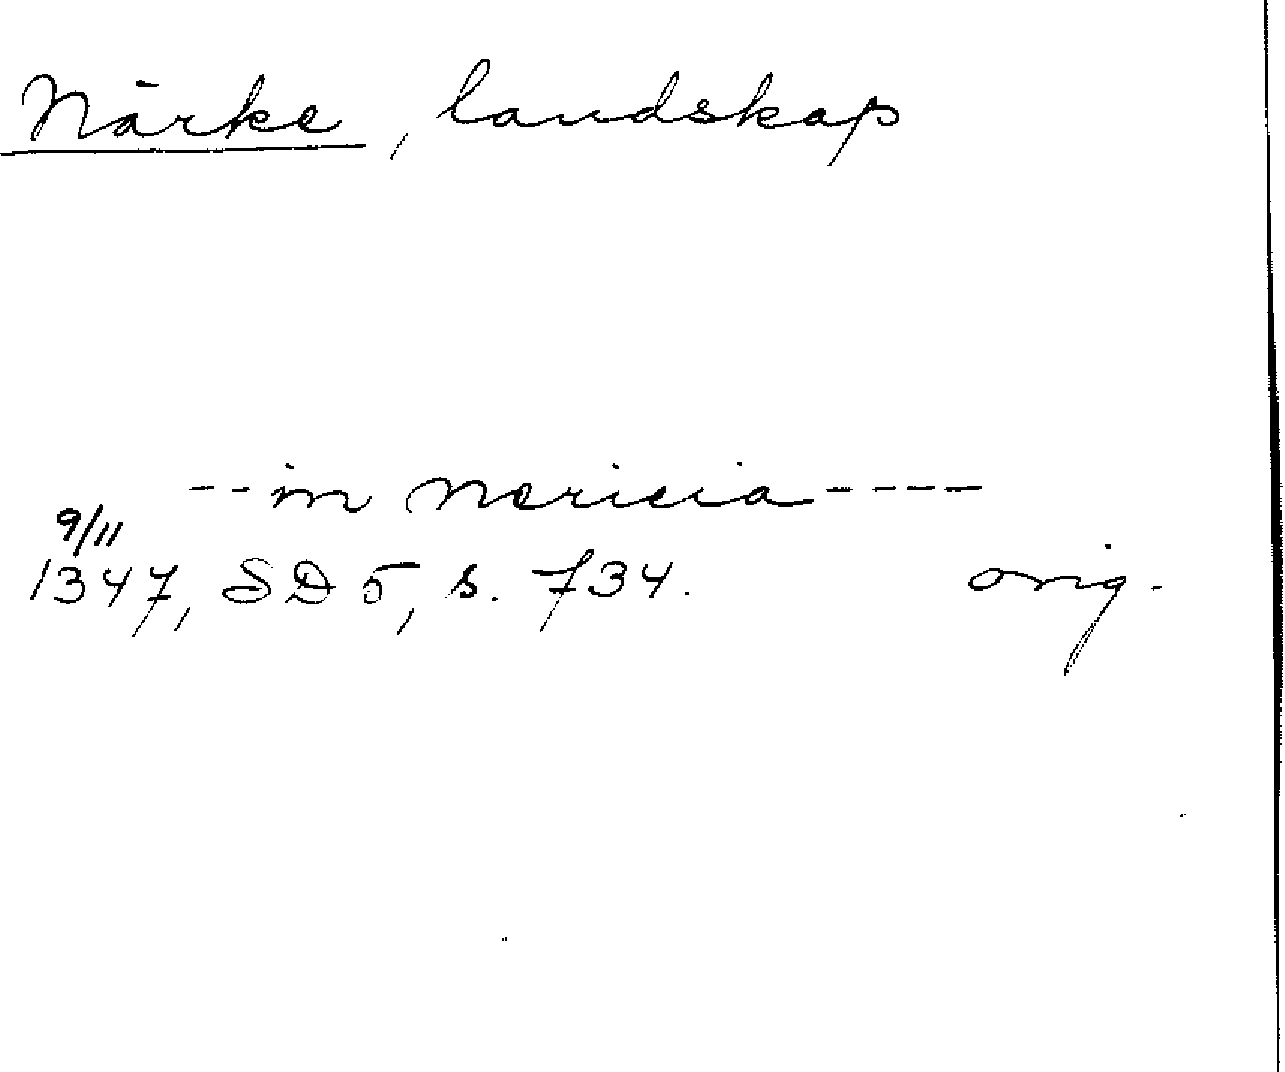 Närke, landskap
--in Nericia----
9/11
1347, SD 5, s. 734. orig.